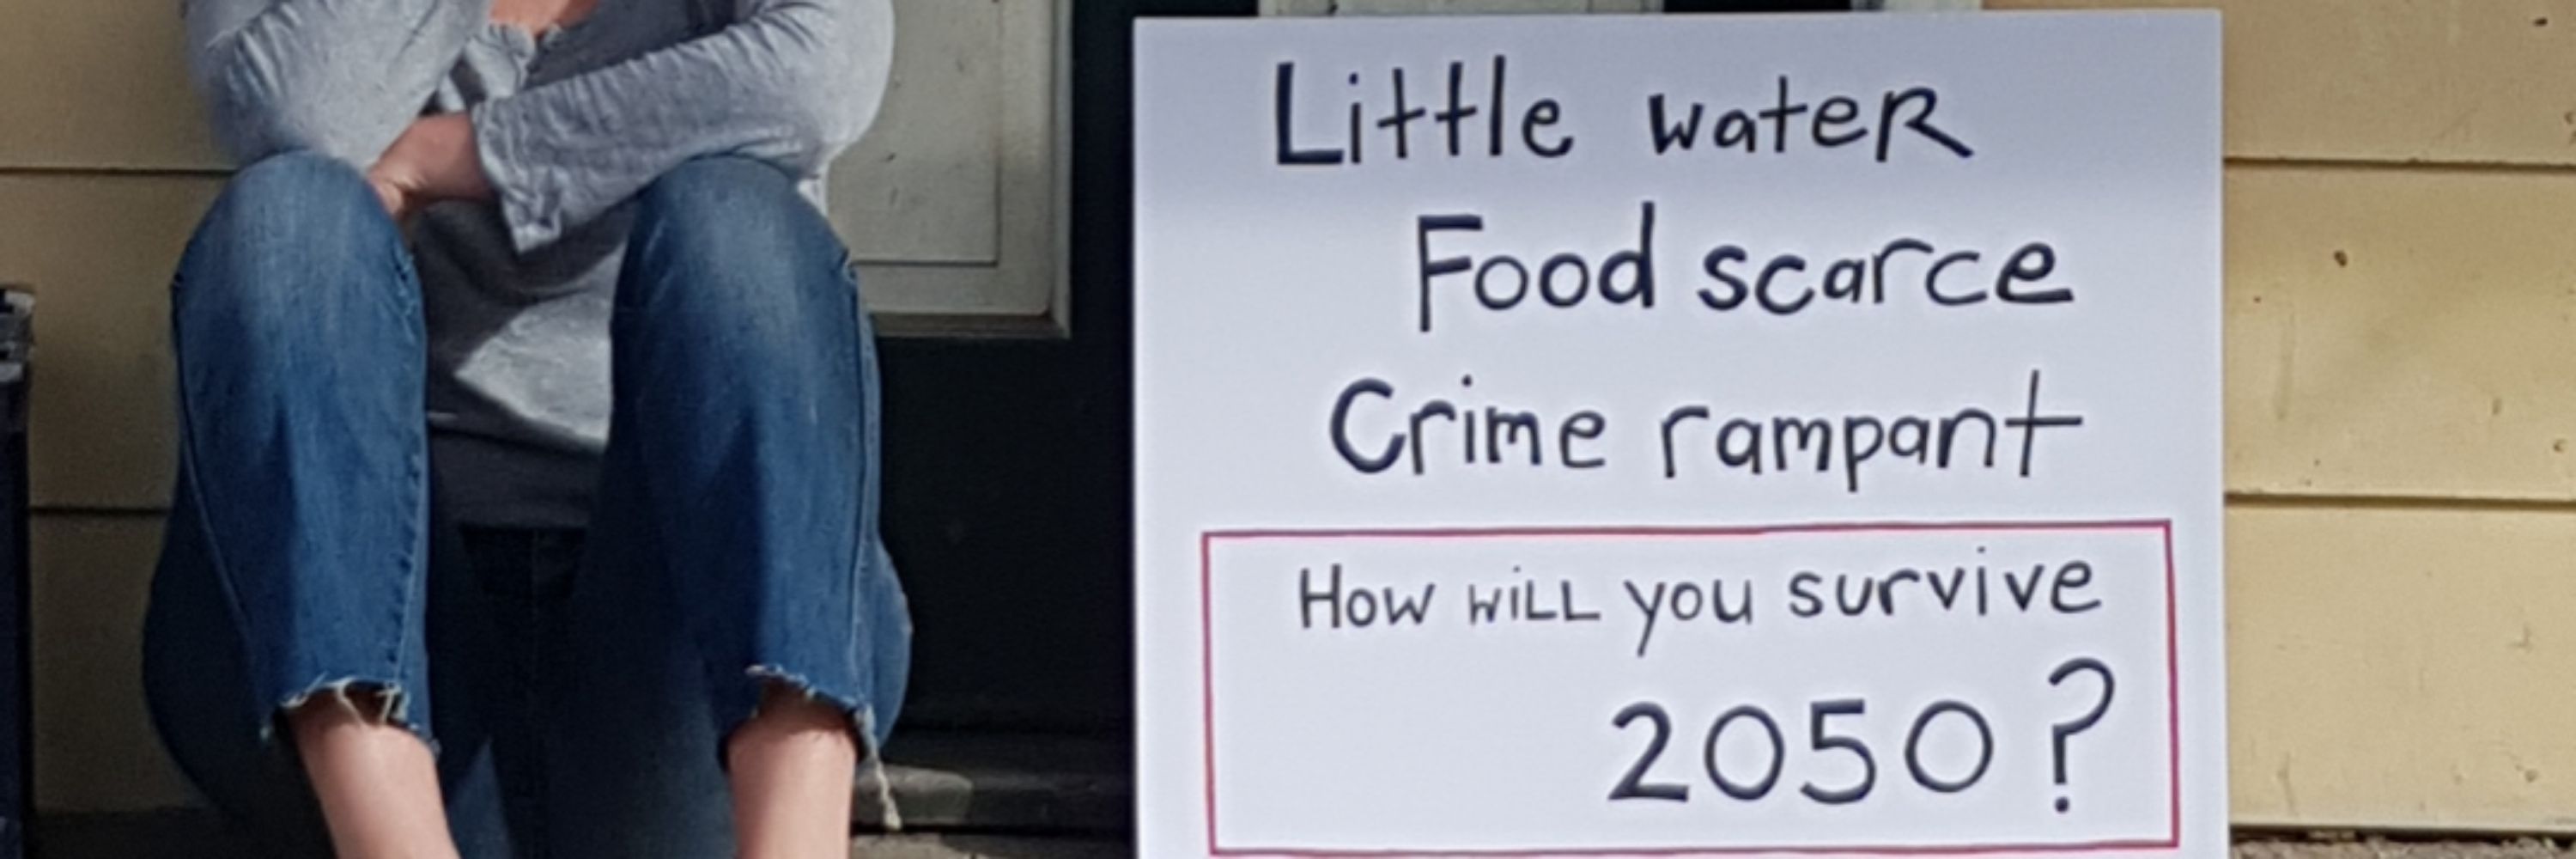 Little wateR
Food scarce
Crime rampant
How wiLL you survive
2050?